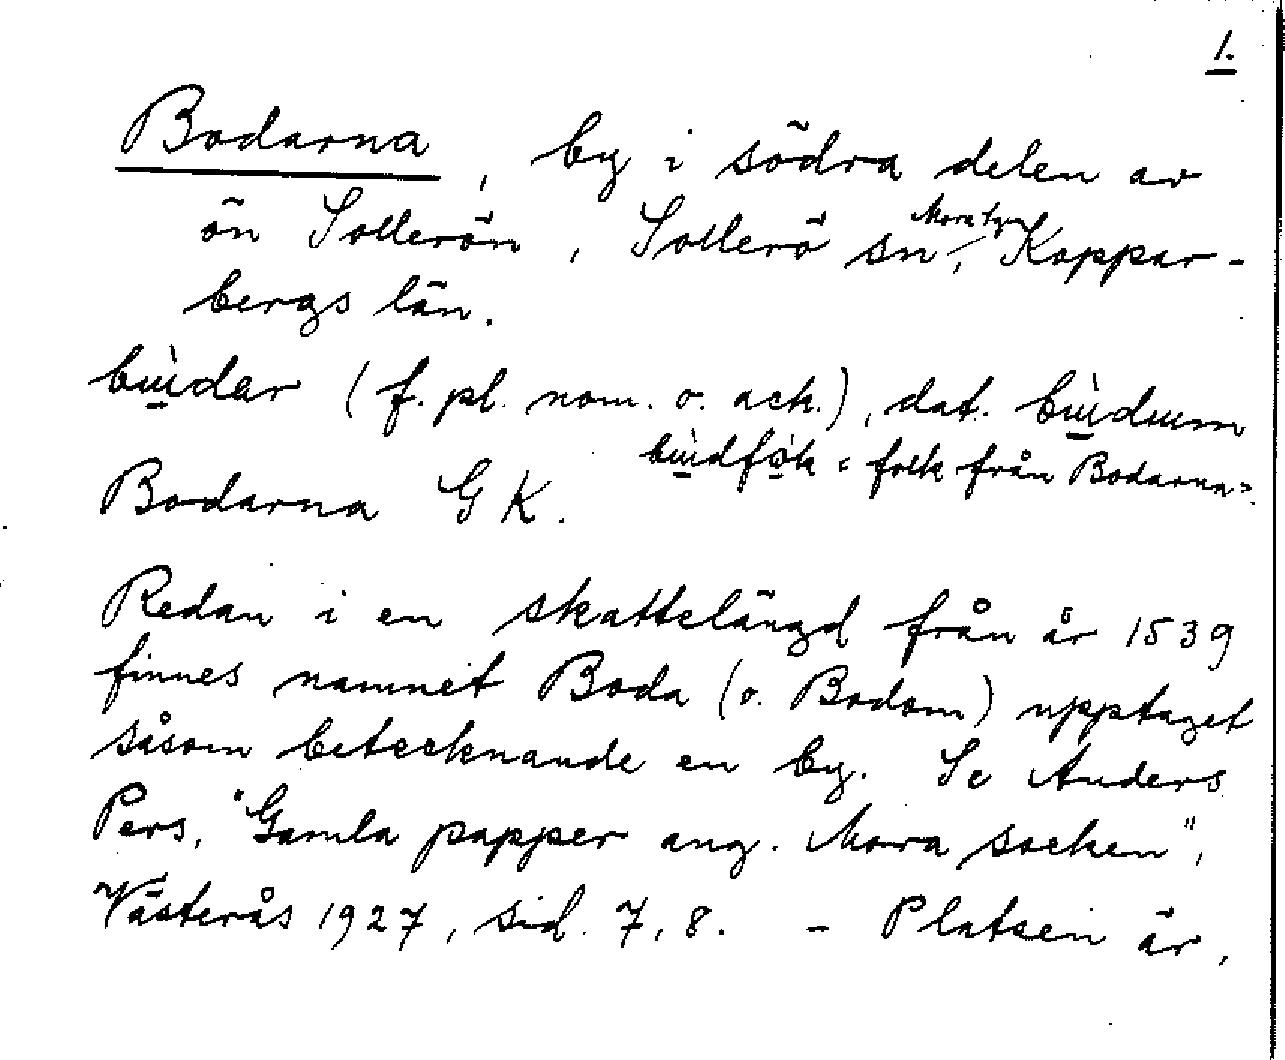 1.
Bodarna, by i södra delen av
ön Sollerön, Sollerö sn, Mora tgn Koppar-
bergs län.
bɯ̀dar (f. pl. nom. o. ack.), dat. bɯ̀dɯm
bɯ̀dfo̠k = folk från Bodarna =.
Bodarna GK.
Redan i en skattelängd från år 1539
finnes namnet Boda (o. Bodom) upptaget
såsom betecknande en by. Se Anders
Pers, "Gamla papper ang. Mora socken",
Västerås 1927, sid. 7, 8. - Platsen är,